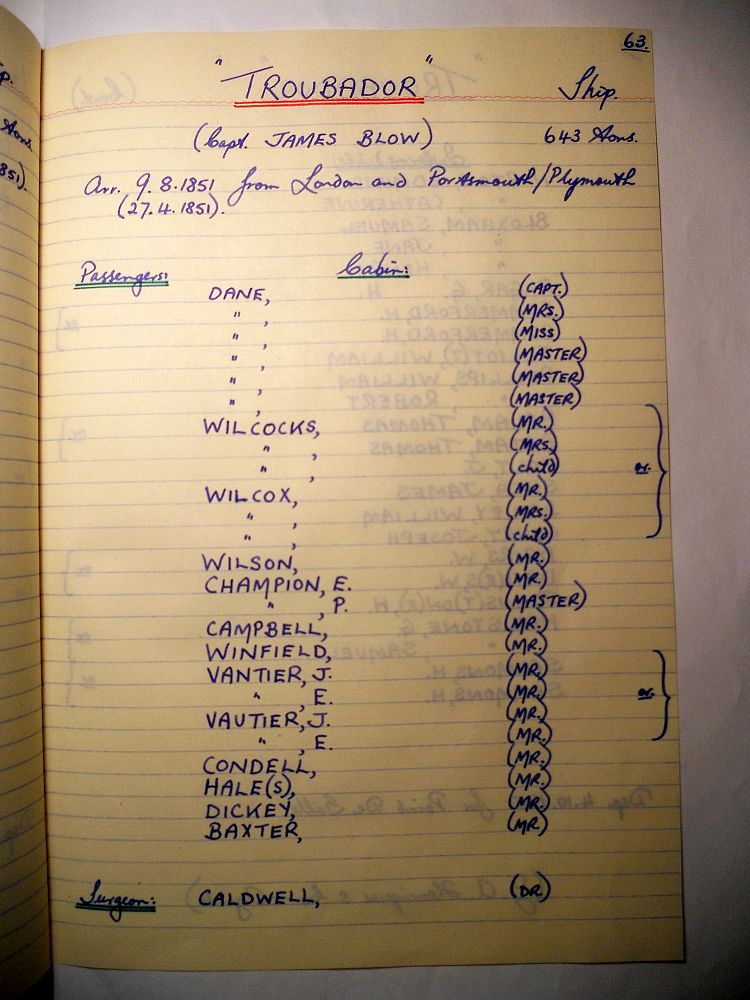 63.
"TROUBADOR" Ship.
(Capt. JAMES BLOW) 643 tons.
Arr. 9.8.1851 from London and Portsmouth/Plymouth
(27.4.1851).
Passengers: Cabin:
DANE, (CAPT.)
" , (MRS.)
" , (MISS)
" , (MASTER)
" , (MASTER)
" , (MASTER)
WILCOCKS, (MR.)
" , (MRS.) or.
" , (child)
WILCOX, (MR.)
" , (MRS.)
" , (child)
WILSON, (MR.)
CHAMPION, E. (MR.)
" , P. (MASTER)
CAMPBELL, (MR.)
WINFIELD, (MR.)
VANTIER, J. (MR.)
" , E. (MR.) or.
VAUTIER, J. (MR.)
" , E. (MR.)
CONDELL, (MR.)
HALE(S), (MR.)
DICKEY, (MR.)
BAXTER, (MR.)
Surgeon: CALDWELL, (DR.)